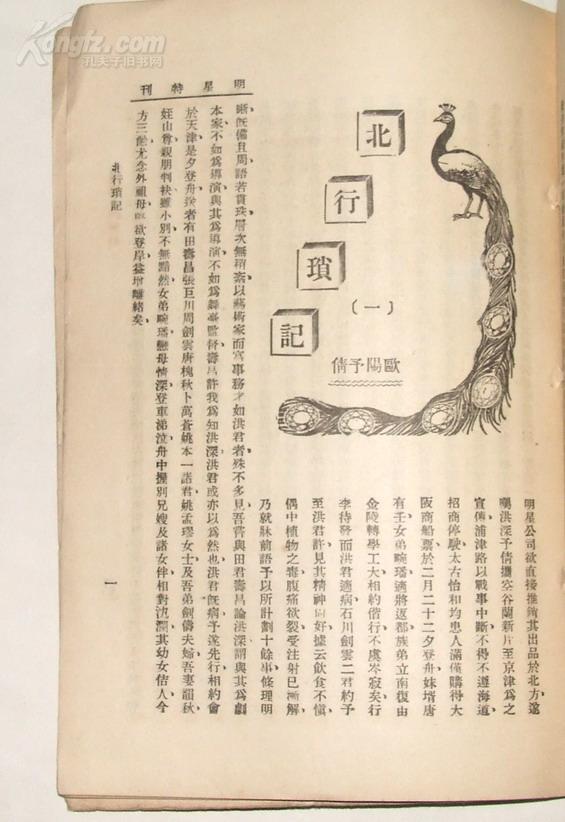 明星特刊
北行瑣記
(一)
歐陽予倩
明星公司欲直接推銷其出品於北方、遂
囑洪深予倩攜空谷蘭新片至京津爲之
宣傳、浦津路以戰事中斷、不得不遵海道、
招商停駛、太古怡和均患人滿、僅購得大
阪商船票、於二月二十二夕登舟、妹壻唐
有壬女弟畹瑤適將返都、族弟立南復由
金陵轉學工大、相約偕行、不虞岑寂矣、行
李待發而洪君適病、石川劍雲二君約予
至洪君許、見其精神尙好、據云飲食不愼、
偶中植物之毒、腹痛欲裂、受注射已漸解、
乃就牀前語予以所計劃十餘事、條理明
晰、旣備且周、語若貫珠、層次無稍紊、以藝術家而富事務才如洪君者、殊不多見、吾嘗與田君壽昌論洪深、謂與其爲劇
本家、不如爲導演、與其爲導演、不如爲舞臺監督、壽昌許我爲知洪深、洪君或亦以爲然也、洪君旣病、予遂先行、相約會
於天津、是夕登舟、送者有田壽昌張巨川周劍雲唐槐秋卜萬蒼姚本一諸君、姚孟璆女士及吾弟劍儔夫婦、吾妻韻秋、
姪山尊、親朋判袂、雖小別不無黯然、女弟畹瑤戀母情深、登車涕泣、舟中握別兄嫂及諸女伴、相對汍瀾、其幼女佶人、今
方三齡、尤念外祖母、臨欲登岸、益增離緒矣、
北行瑣記
一
Kongfz.com
孔夫子旧书网